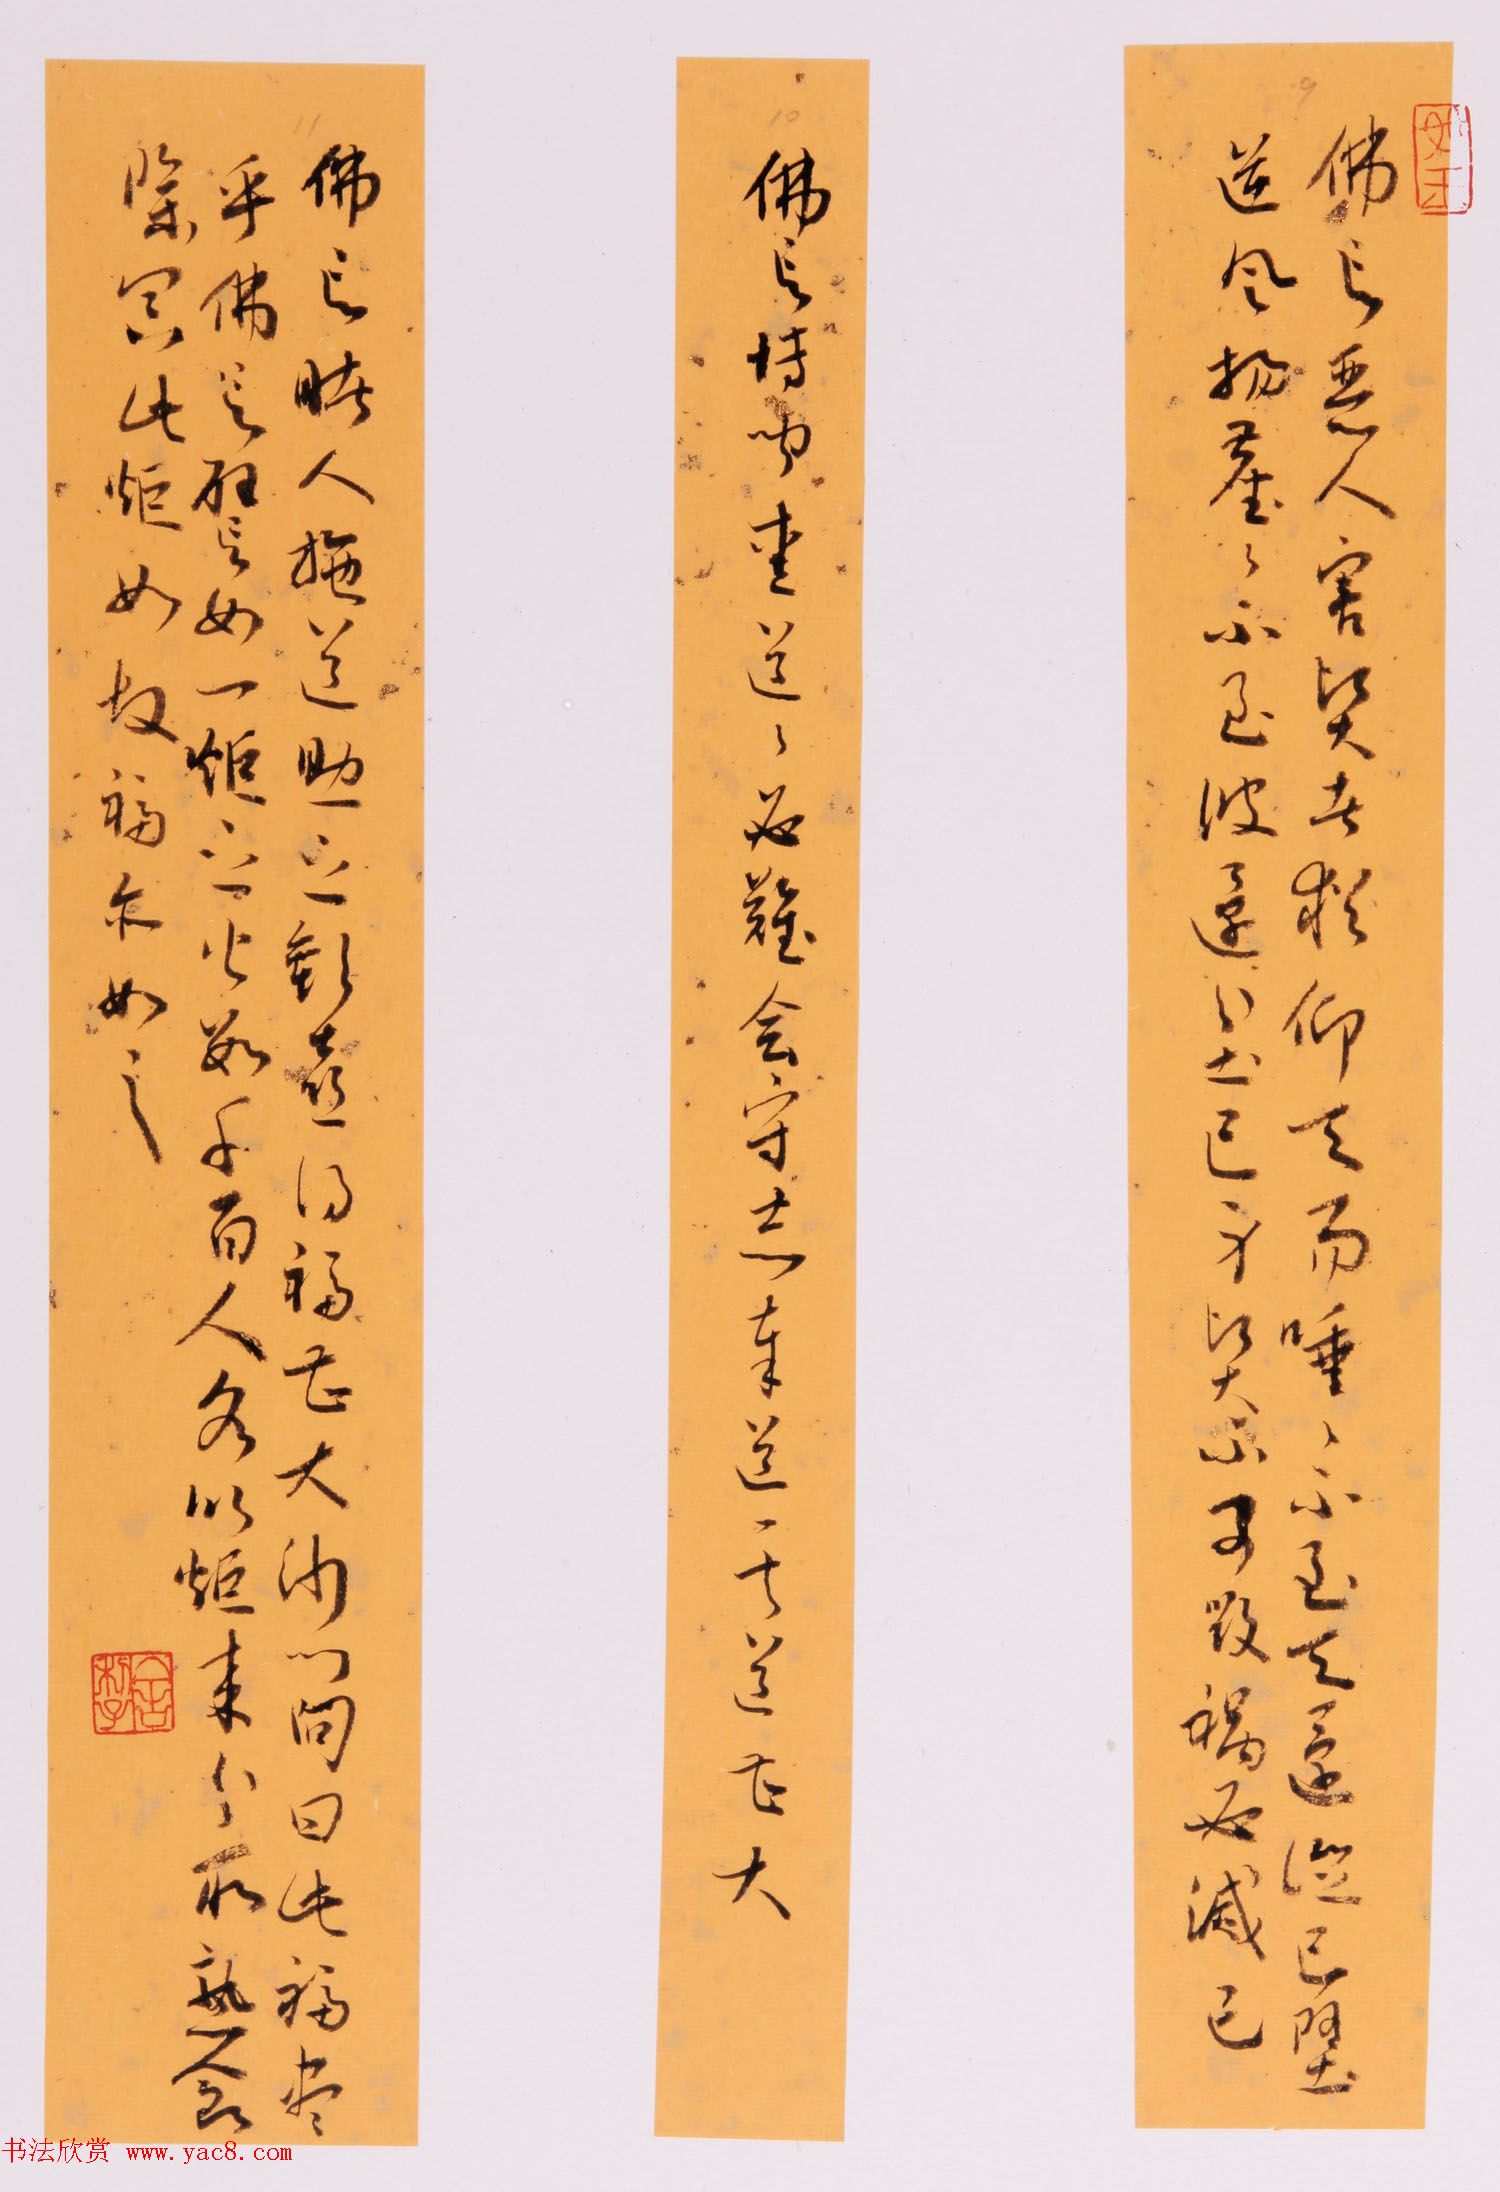 9
佛言惡人害賢者猶仰天而唾〻不至天還從己墮
逆風揚塵〻不至彼還坌己身賢不可毀禍必滅己
10
佛言博聞愛道〻必難會守志奉道其道甚大
11
佛言睹人施道助之歡喜得福甚大沙門問曰此福盡
乎佛言譬如一炬之火數千百人各以炬來分取熟食
除冥此炬如故福亦如之
书法欣赏 www.yac8.com